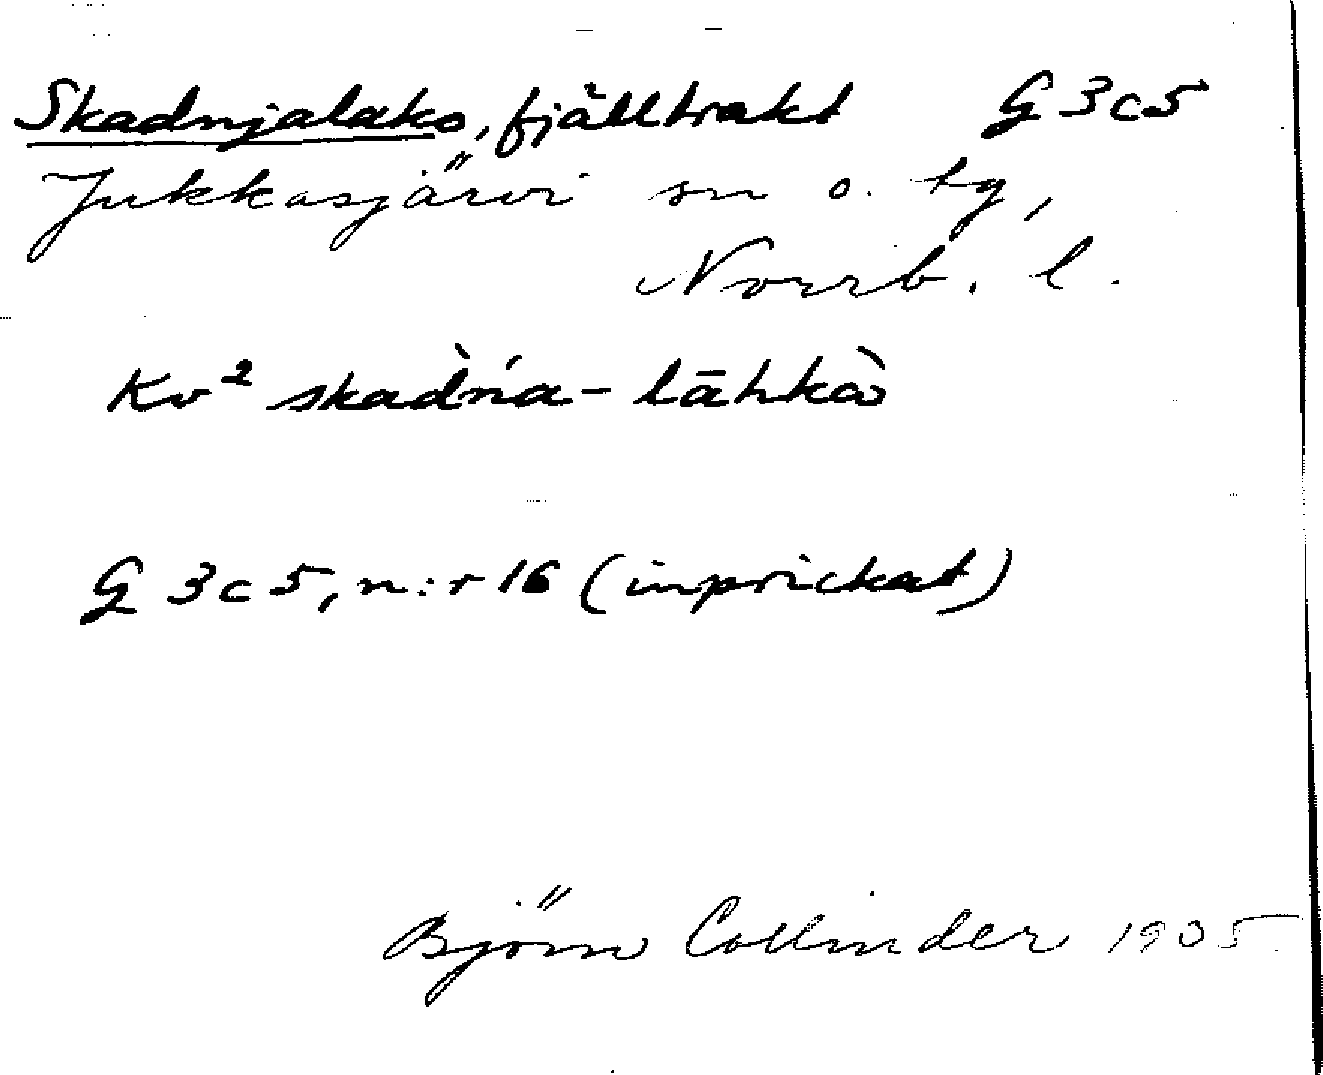 Skadnjalako, fjälltrakt G 3c5
Jukkasjärvi sn o. tg,
Norrb. l.
Kv² skad̀ńa - lāhkà
G 3c5, n:r 16 (inprickat)
Björn Collinder 1935